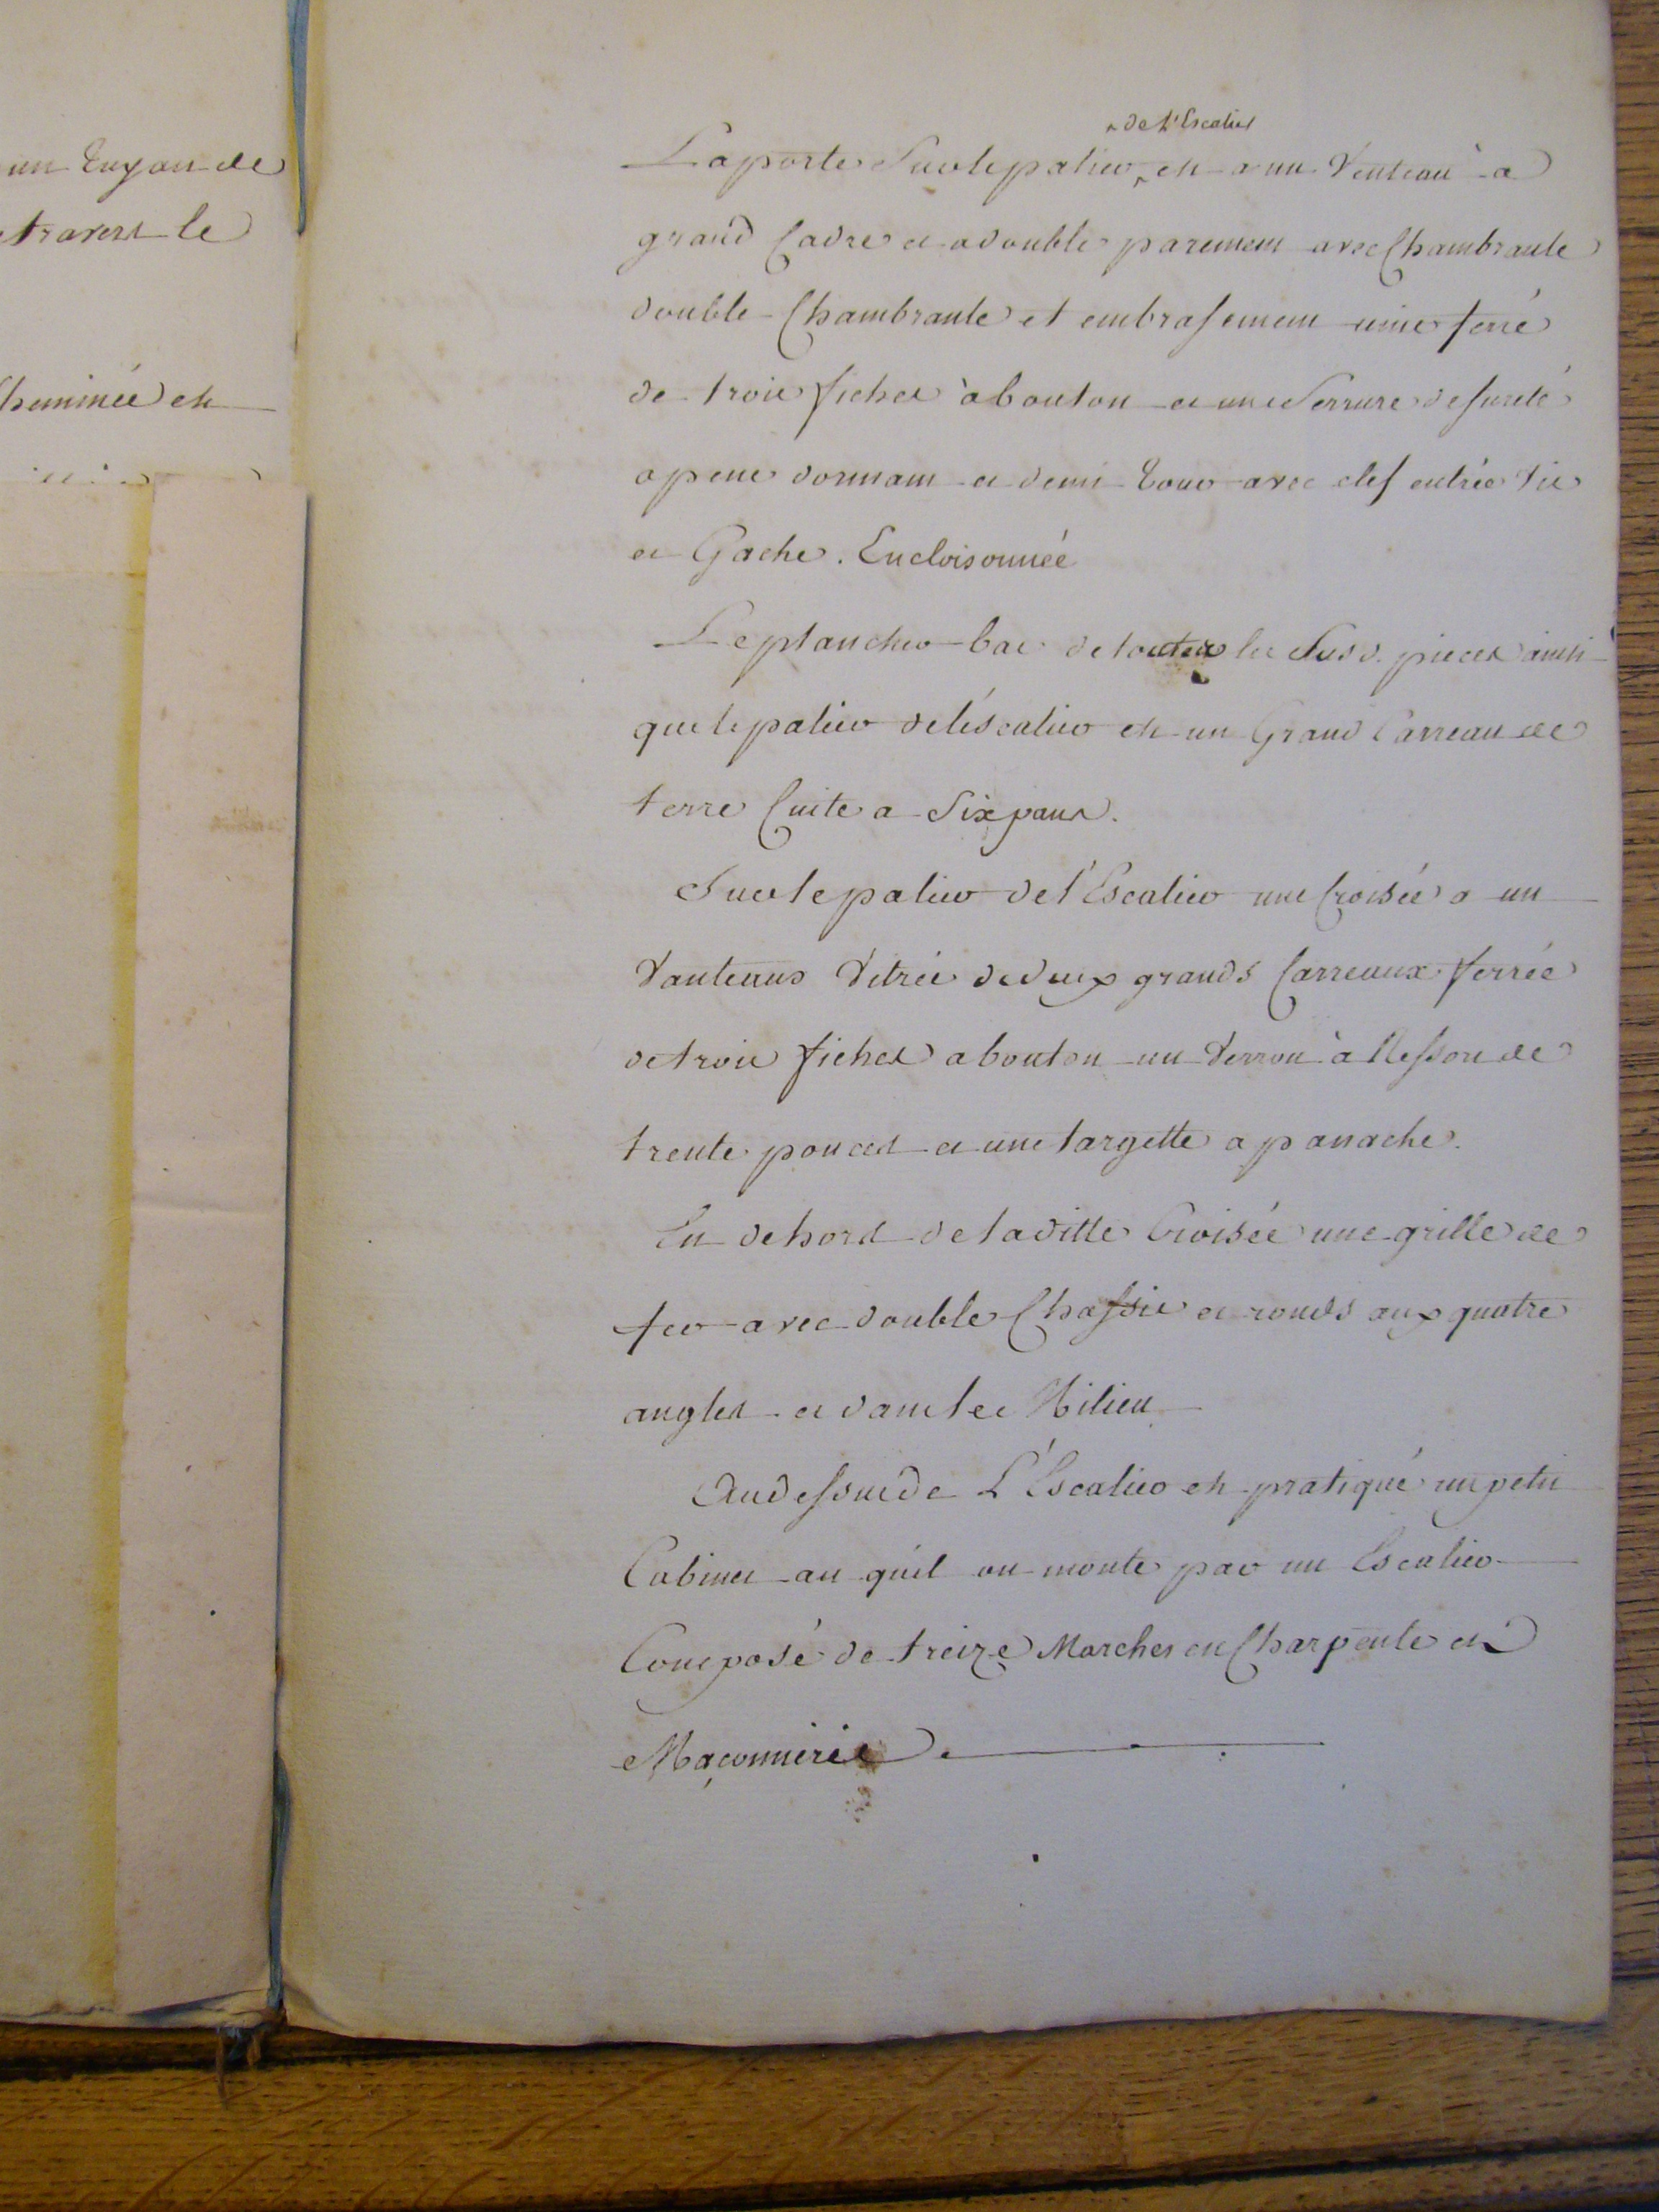 un Tuyau de
travers le
cheminée est
de l'Escalier
La porte Sur le palier est a un Venteau à
grand Cadre et a double parement avec Chambranle
double Chambranle et embrasement unie ferré
de trois fiches à bouton et une Serrure de sureté
a pene dormant et demi Tour avec clef entrée vis
et Gache. Encloisonnée
Le plancher bas de toutes les Susd. pieces ainsi
que le palier de l'éscalier est un Grand Carreau de
terre Cuite a Six pans.
Sur le palier de l'Escalier une Croisée a un
Vanteaus Vitrée de deux grands Carreaux ferrée
de trois fiches a bouton un Verrou à Ressort de
trente pouces et une targette a panache.
En dehors de la ditte Croisée une grille de
fer avec double Chassis et ronds aux quatre
angles et dans les Milieu
Au dessus de L'Éscalier est pratiqué un petit
Cabinet au quel on monte par un Escalier
Composé de treize Marches en Charpente et
Maçonnerie